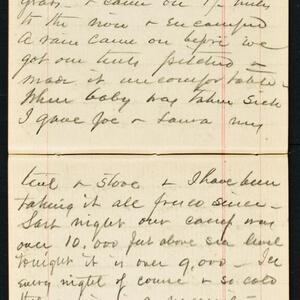 grass - & came on 1 1/2 miles
to the river & encamped
A rain came on before we
got our tents pitched &
made it uncomfortable -
When baby was taken sick
I gave Joe & Laura my
tent & stove & I have been
taking it all fresco since -
Last night our camp was
over 10.000 feet above sea level
tonight it is over 9,000 - Ice
every night of course & so cold